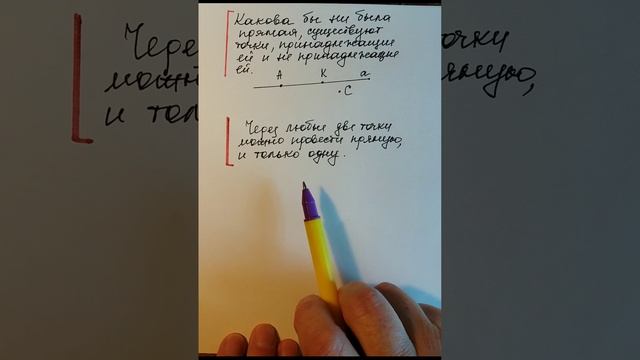 Какова бы ни была
прямая, существуют
точки, принадлежащие
ей и не принадлежащие
ей.
A K a
C
Через любые две точки
можно провести прямую,
и только одну.